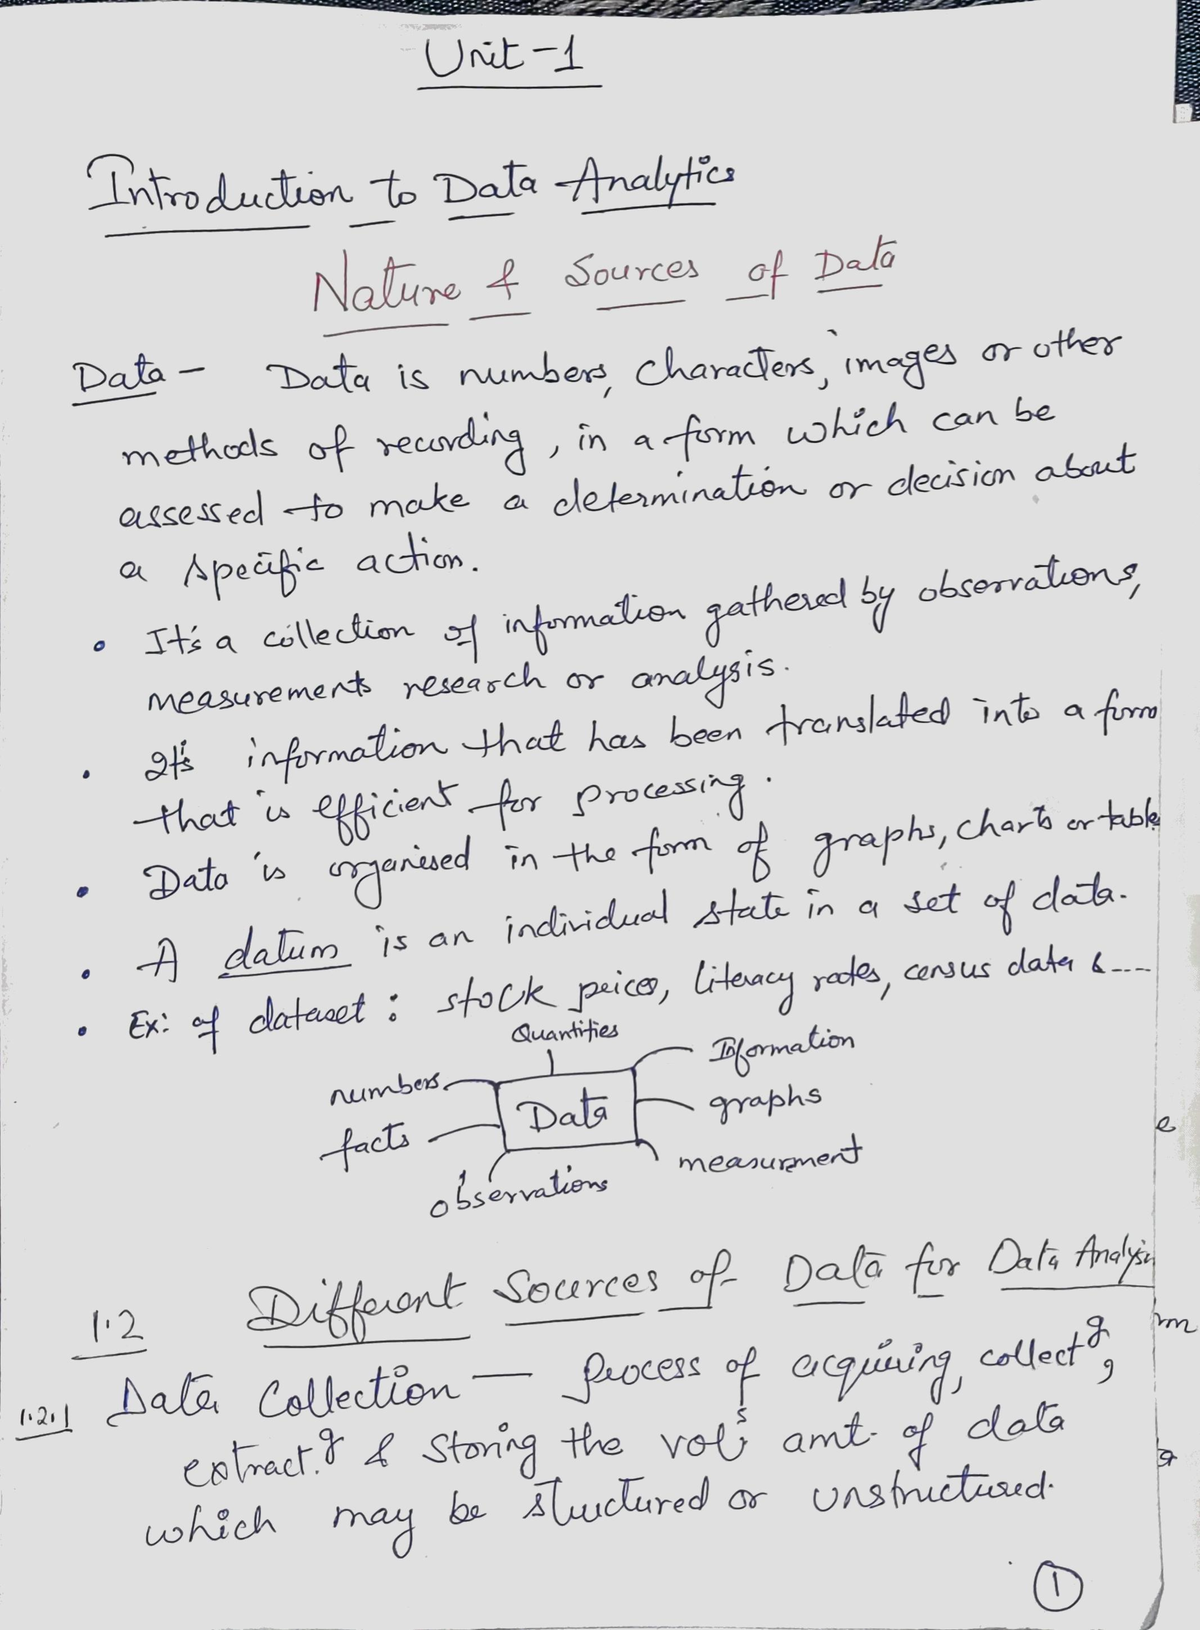 Unit-1
Introduction to Data Analytics
Nature & Sources of Data
Data - Data is numbers, characters, images or other
methods of recording, in a form which can be
assessed to make a determination or decision about
a specific action.
• It's a collection of information gathered by observations,
measurements research or analysis.
• It's information that has been translated into a form
that is efficient for processing.
• Data is organised in the form of graphs, charts or table
• A datum is an individual state in a set of data.
• Ex: of dataset: stock prices, literacy rates, census data & ----
Quantities
numbers Information
Data
facts graphs
observations measurment
e
1.2 Different Sources of Data for Data Analysis
m
1.2.1 Data Collection — Process of acquiring, collectg,
extract.g & storing the vol. amt. of data
a
which may be structured or unstructured.
1